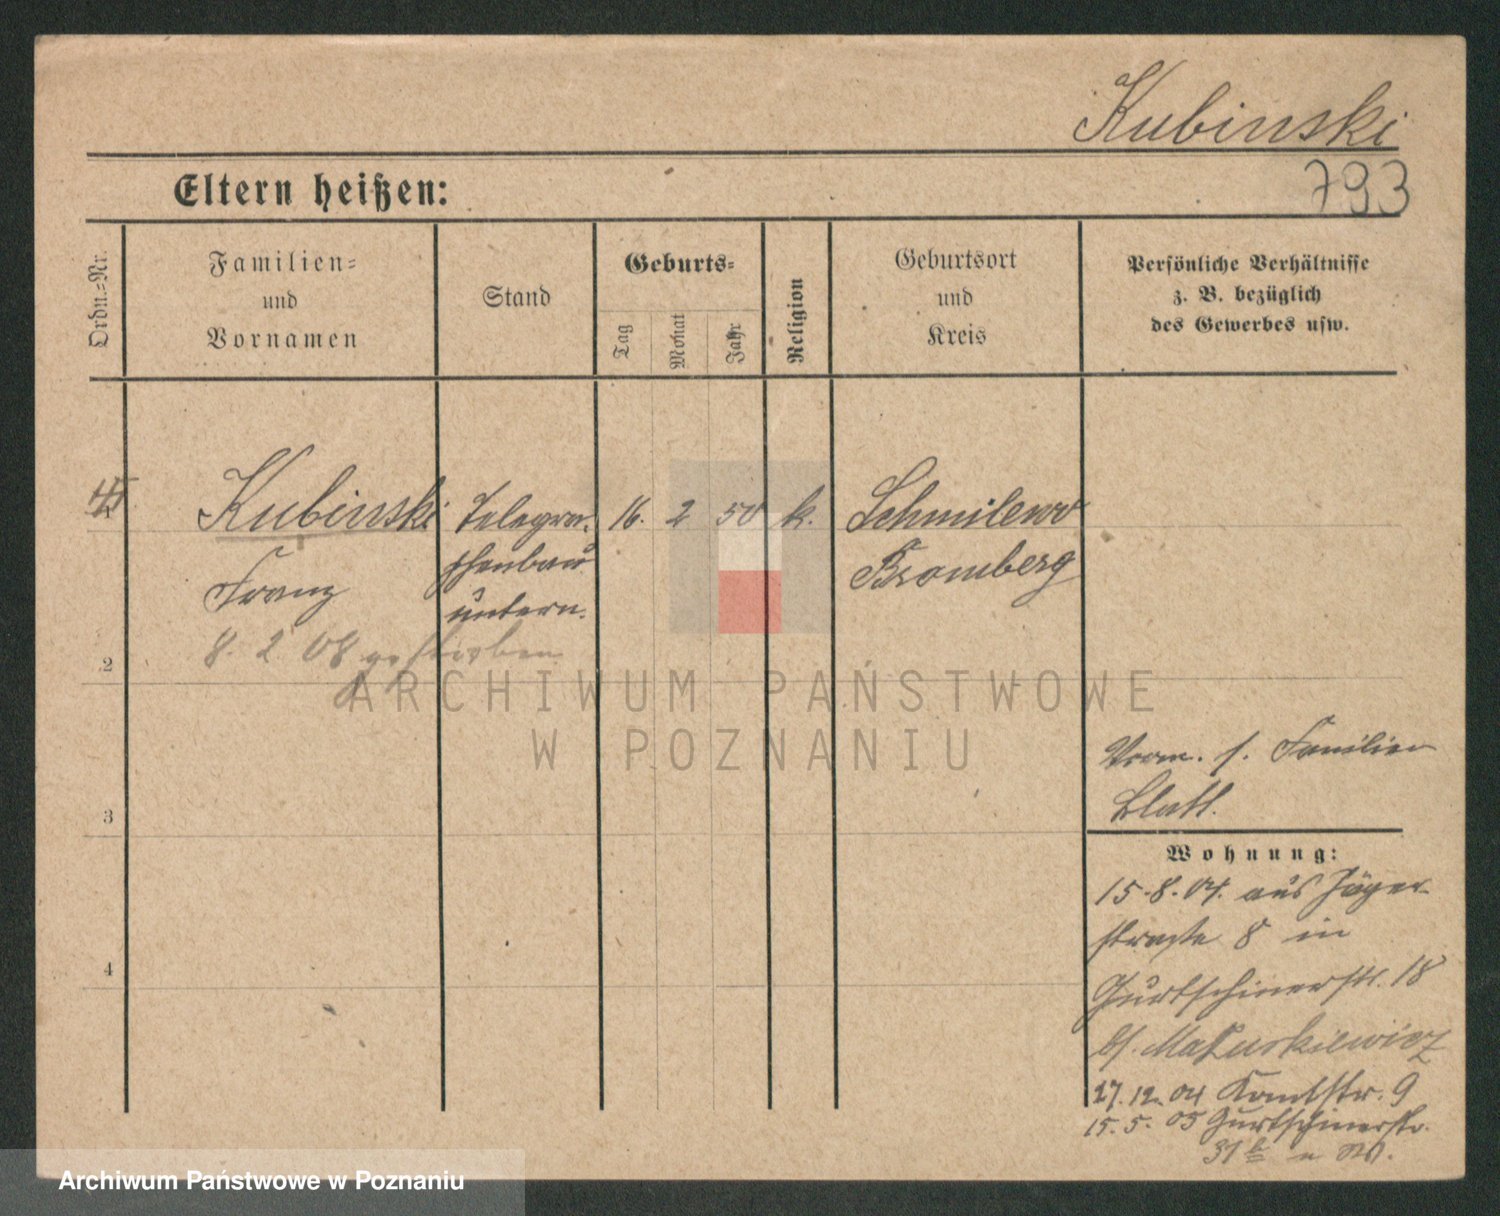 Kubinski
793
Eltern heißen:
Ordn.=Nr.
Familien=
und
Vornamen
Stand
Geburts=
Tag
Monat
Jahr
Religion
Geburtsort
und
Kreis
Persönliche Verhältnisse
z. B. bezüglich
des Gewerbes usw.
1
Kubinski
Telegra-
16. 2 50 k.
Schmilewo
Franz
phenbau
Bromberg
untern.
8. 2 08 gestorben
2
ARCHIWUM PAŃSTWOWE
W POZNANIU
Verm. s. Familien
blatt.
3
Wohnung:
15.8.04. aus Jäger-
straße 8 in
4
Gurtschinerstr. 18
b/.
27.12.04 Kantstr. 9
15.5.05 Gurtschinerstr.
31
Archiwum Państwowe w Poznaniu